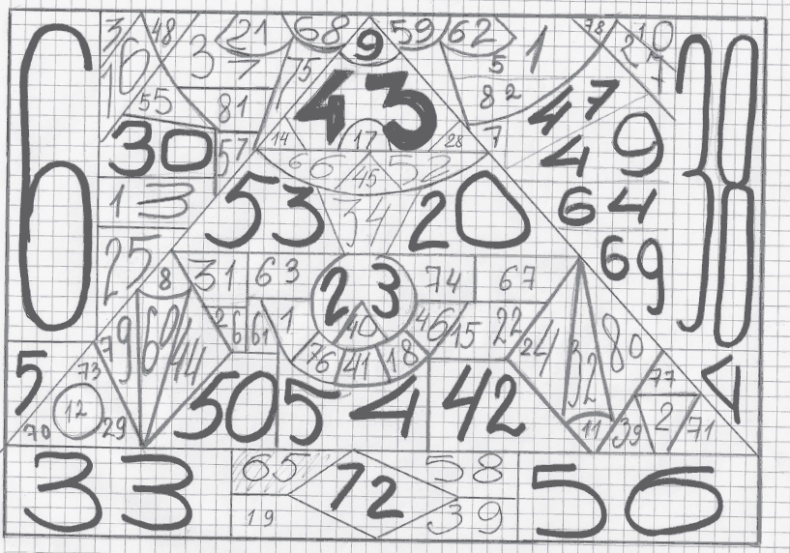 6
3 48 21 68 9 59 62 78 10
16 3 7 75 43 5 1 2 7 38
55 81 82 47
30 57 14 17 28 7 49
13 66 45 52 64
53 34 20 69
25 8 31 63 23 74 67
79 60 44 26 61 1 40 46 15 22 24 32 80
5 73 76 41 18 77 4
12 50 54 42 2
70 29 11 39 71
33 65 72 58 56
19 39